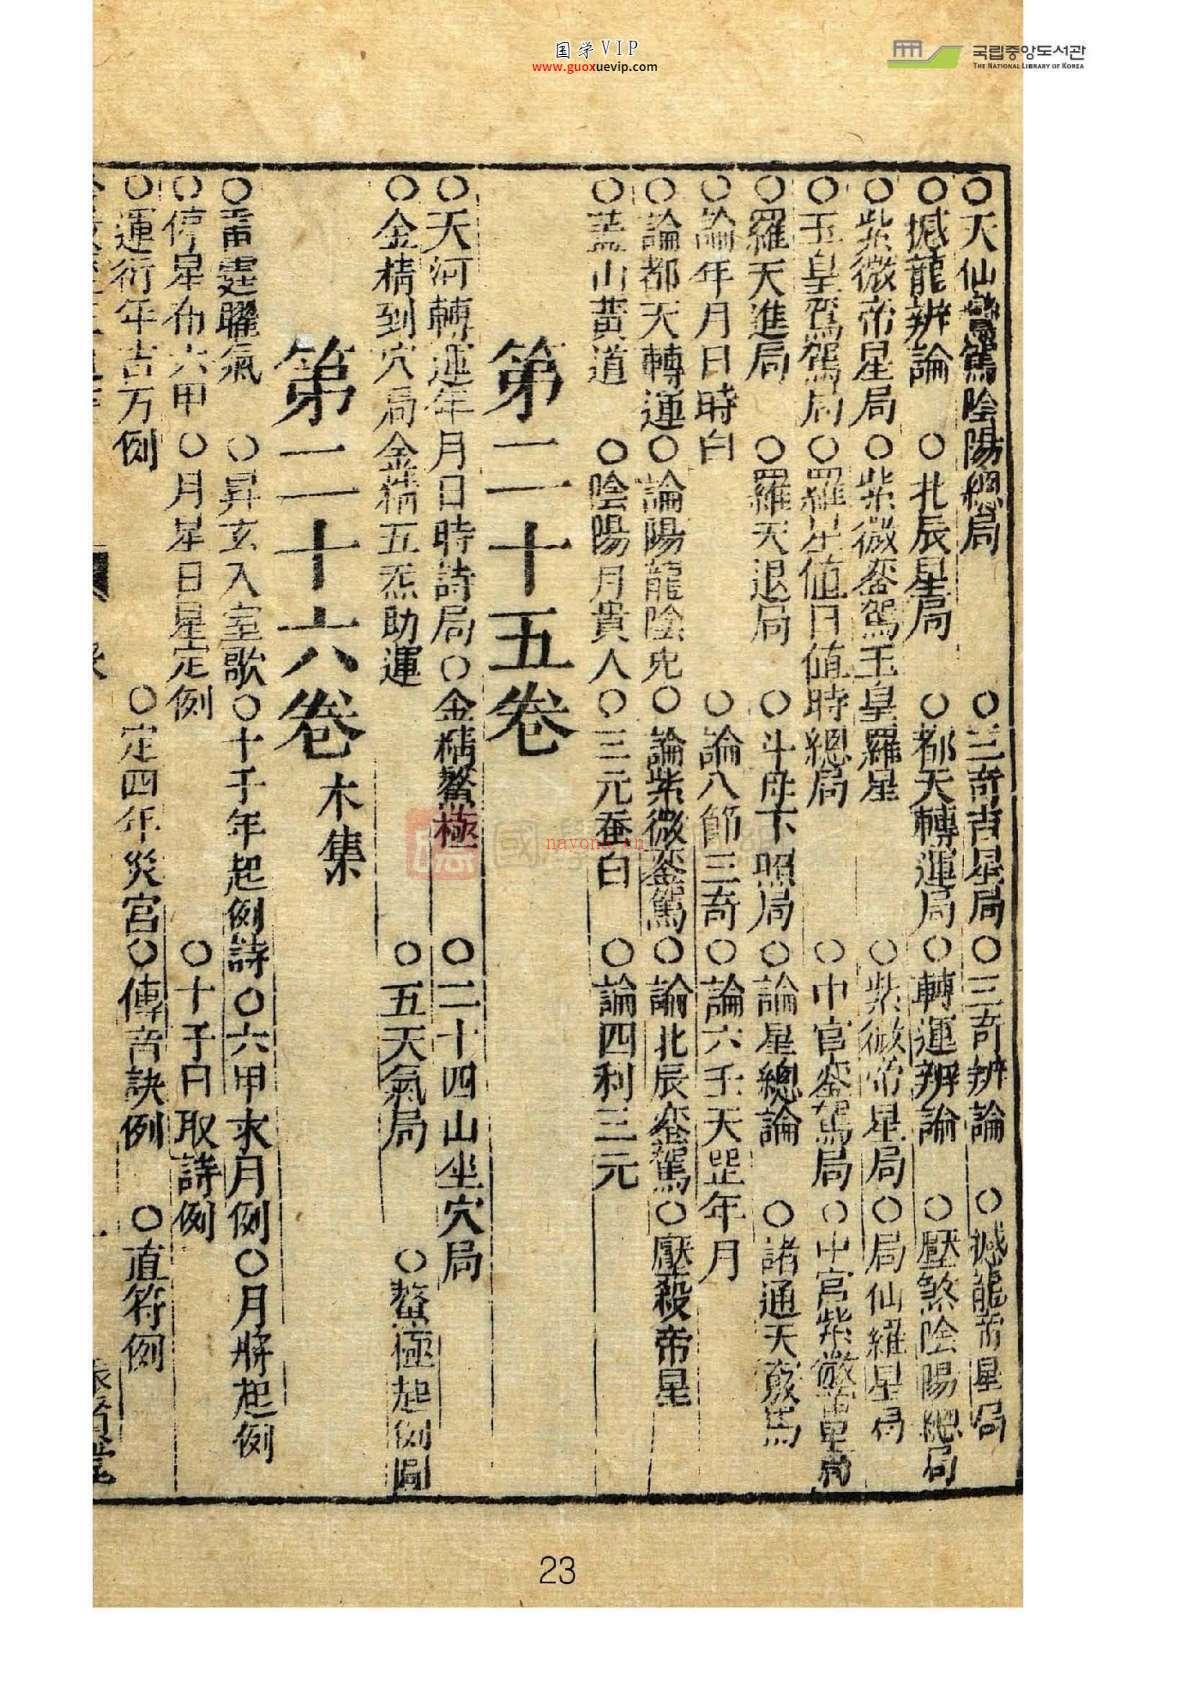 国学VIP
www.guoxuevip.com
국립중앙도서관
THE NATIONAL LIBRARY OF KOREA
○天仙鸞駕陰陽總局 ○三奇吉星局○三奇辨論 ○撼龍帝星局
○撼龍辨論 ○北辰星局 ○都天轉運局○轉運辨論 ○壓煞陰陽總局
○紫微帝星局○紫微鑾駕玉皇羅星 ○紫微帝星局○局仙羅星局
○玉皇鑾駕局○羅星値日値時總局 ○中宮鑾駕局○中宮紫微帝星局
○羅天進局 ○羅天退局 ○斗母下照局○論星總論 ○諸通天竅馬
○論年月日時白 ○論八節三奇○論六壬天罡年月
○論都天轉運○論陽龍陰兎○論紫微鑾駕○論北辰鑾駕○壓殺帝星
○蓋山黃道 ○陰陽月貴人○三元蚕白 ○論四利三元
第二十五卷
○天河轉運年月日時詩局○金精鰲極 ○二十四山坐穴局
○金精到穴局金精五炁助運 ○五天氣局 ○鰲極起例圖
第二十六卷 木集
○雷霆曜氣 ○昇玄入室歌○十干年起例詩○六甲求月例○月將起例
○停星布六甲○月星日星定例 ○十干日取詩例
○運衍年吉方例 ○定四年災宮○傳音訣例 ○直符例
nayona.cn
23